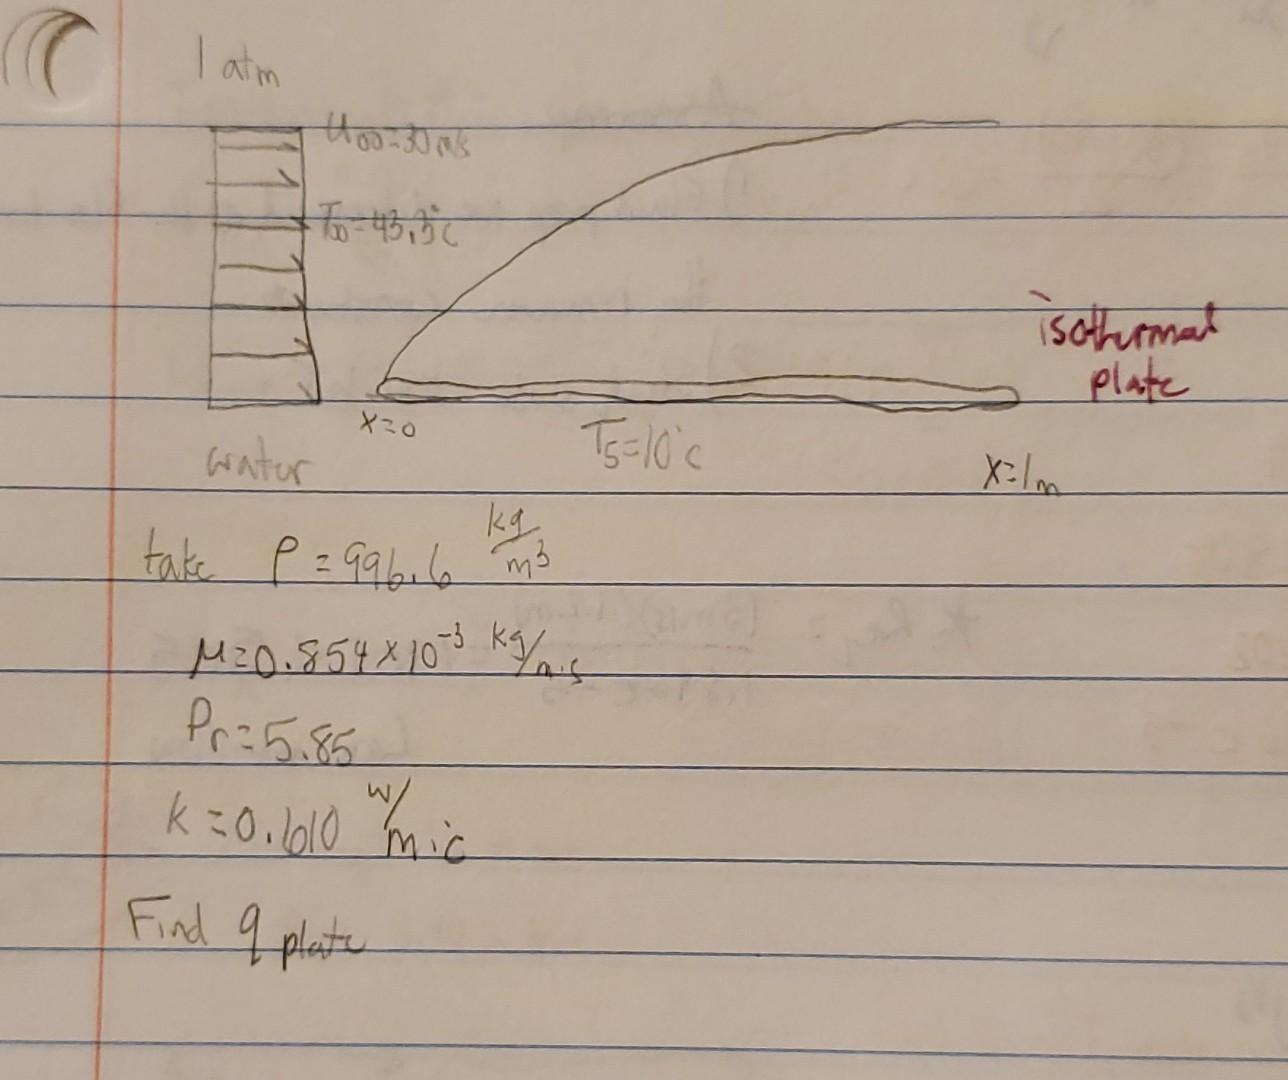 1 atm
U∞=30 m/s
T∞=43.3°C
isothermal
plate
x=0
Ts=10°C
water
x=1m
take ρ = 996.6 kg/m³
μ=0.854×10⁻³ kg/m·s
Pr=5.85
k=0.610 W/m·°C
Find q plate